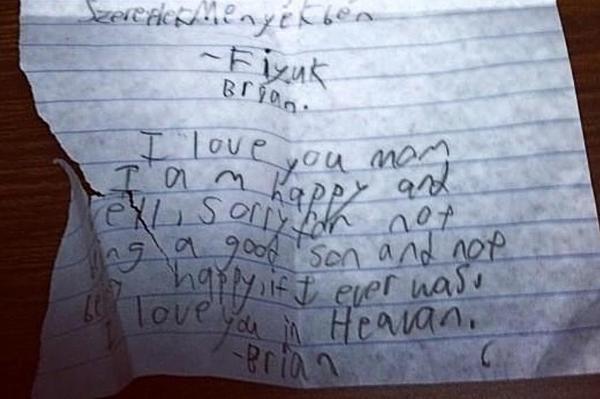 Szeretlek Menyékben
~Fiyuk
Brian.
I love you mom
I am happy and
ell, Sorry for not
ing a good son and not
happy, if I ever was.
I love you in Heavan.
-Brian